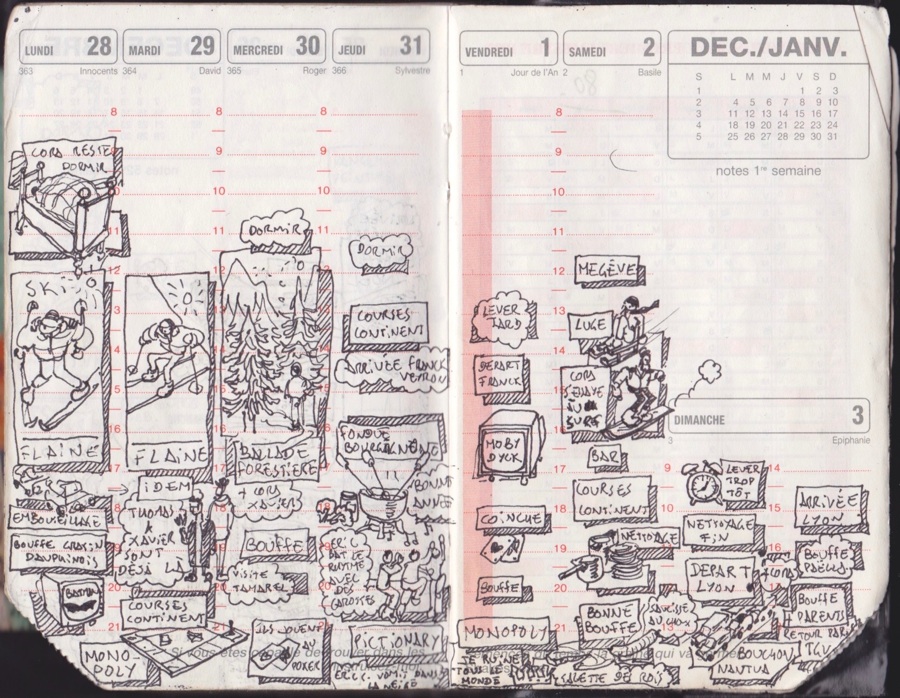 LUNDI 28
363 Innocents
8
9
CORA RESTE
DORMIR
10
11
12
SKI
13
14
15
16
FLAINE
17
18
EMBOUTEILLAGE
19
BOUFFE GRATIN
DAUPHINOIS
20
BATMAN
21
MONO-
POLY
MARDI 29
364 David
8
9
10
11
12
13
14
15
16
FLAINE
17
→ IDEM
18
THOMAS
&
XAVIER
SONT
DÉJA LÀ
COURSES
CONTINENT
21
MERCREDI 30
365 Roger
8
9
10
11
DORMIR
12
BALADE
FORESTIÈRE
+ CORA
XAVIER
BOUFFE
VISITE
ILS JOUENT
AU
POKER
JEUDI 31
366 Sylvestre
DORMIR
COURSES
CONTINENT
ARRIVÉE FRANCK
VEYRON
FONDUE
BOURGUIGNONNE
BONNE
ANNÉE
ERIC
BAT LE
RYTHME
AVEC
DES
CAROTTES
PICTIONARY
ERIC VOMIT DANS
LA NEIGE
VENDREDI 1
1 Jour de l'An
LEVER
TARD
DEPART
FRANCK
MOBY
DYCK
COINCHE
BOUFFE
MONOPOLY
JE RUINE
TOUT LE
MONDE
SAMEDI 2
2 Basile
8
9
10
11
12
MEGÈVE
13
LUGE
14
CORA
S'ESSAYE
AU
SURF
15
16
BAR
17
COURSES
CONTINENT
18
NETTOYAGE
19
20
BONNE
BOUFFE
21
GALETTE DE ROIS
DEC./JANV.
S L M M J V S D
1 1 2 3
2 4 5 6 7 8 9 10
3 11 12 13 14 15 16 17
4 18 19 20 21 22 23 24
5 25 26 27 28 29 30 31
notes 1re semaine
DIMANCHE 3
3 Epiphanie
9
14
LEVER
TROP
TÔT
10
15
NETTOYAGE
FIN
11
16
DEPART
LYON
+ CORA
BOUCHON
NANTUA
ARRIVÉE
LYON
BOUFFE
PAËLLA
BOUFFE
+ PARENTS
RETOUR PARIS
TGV